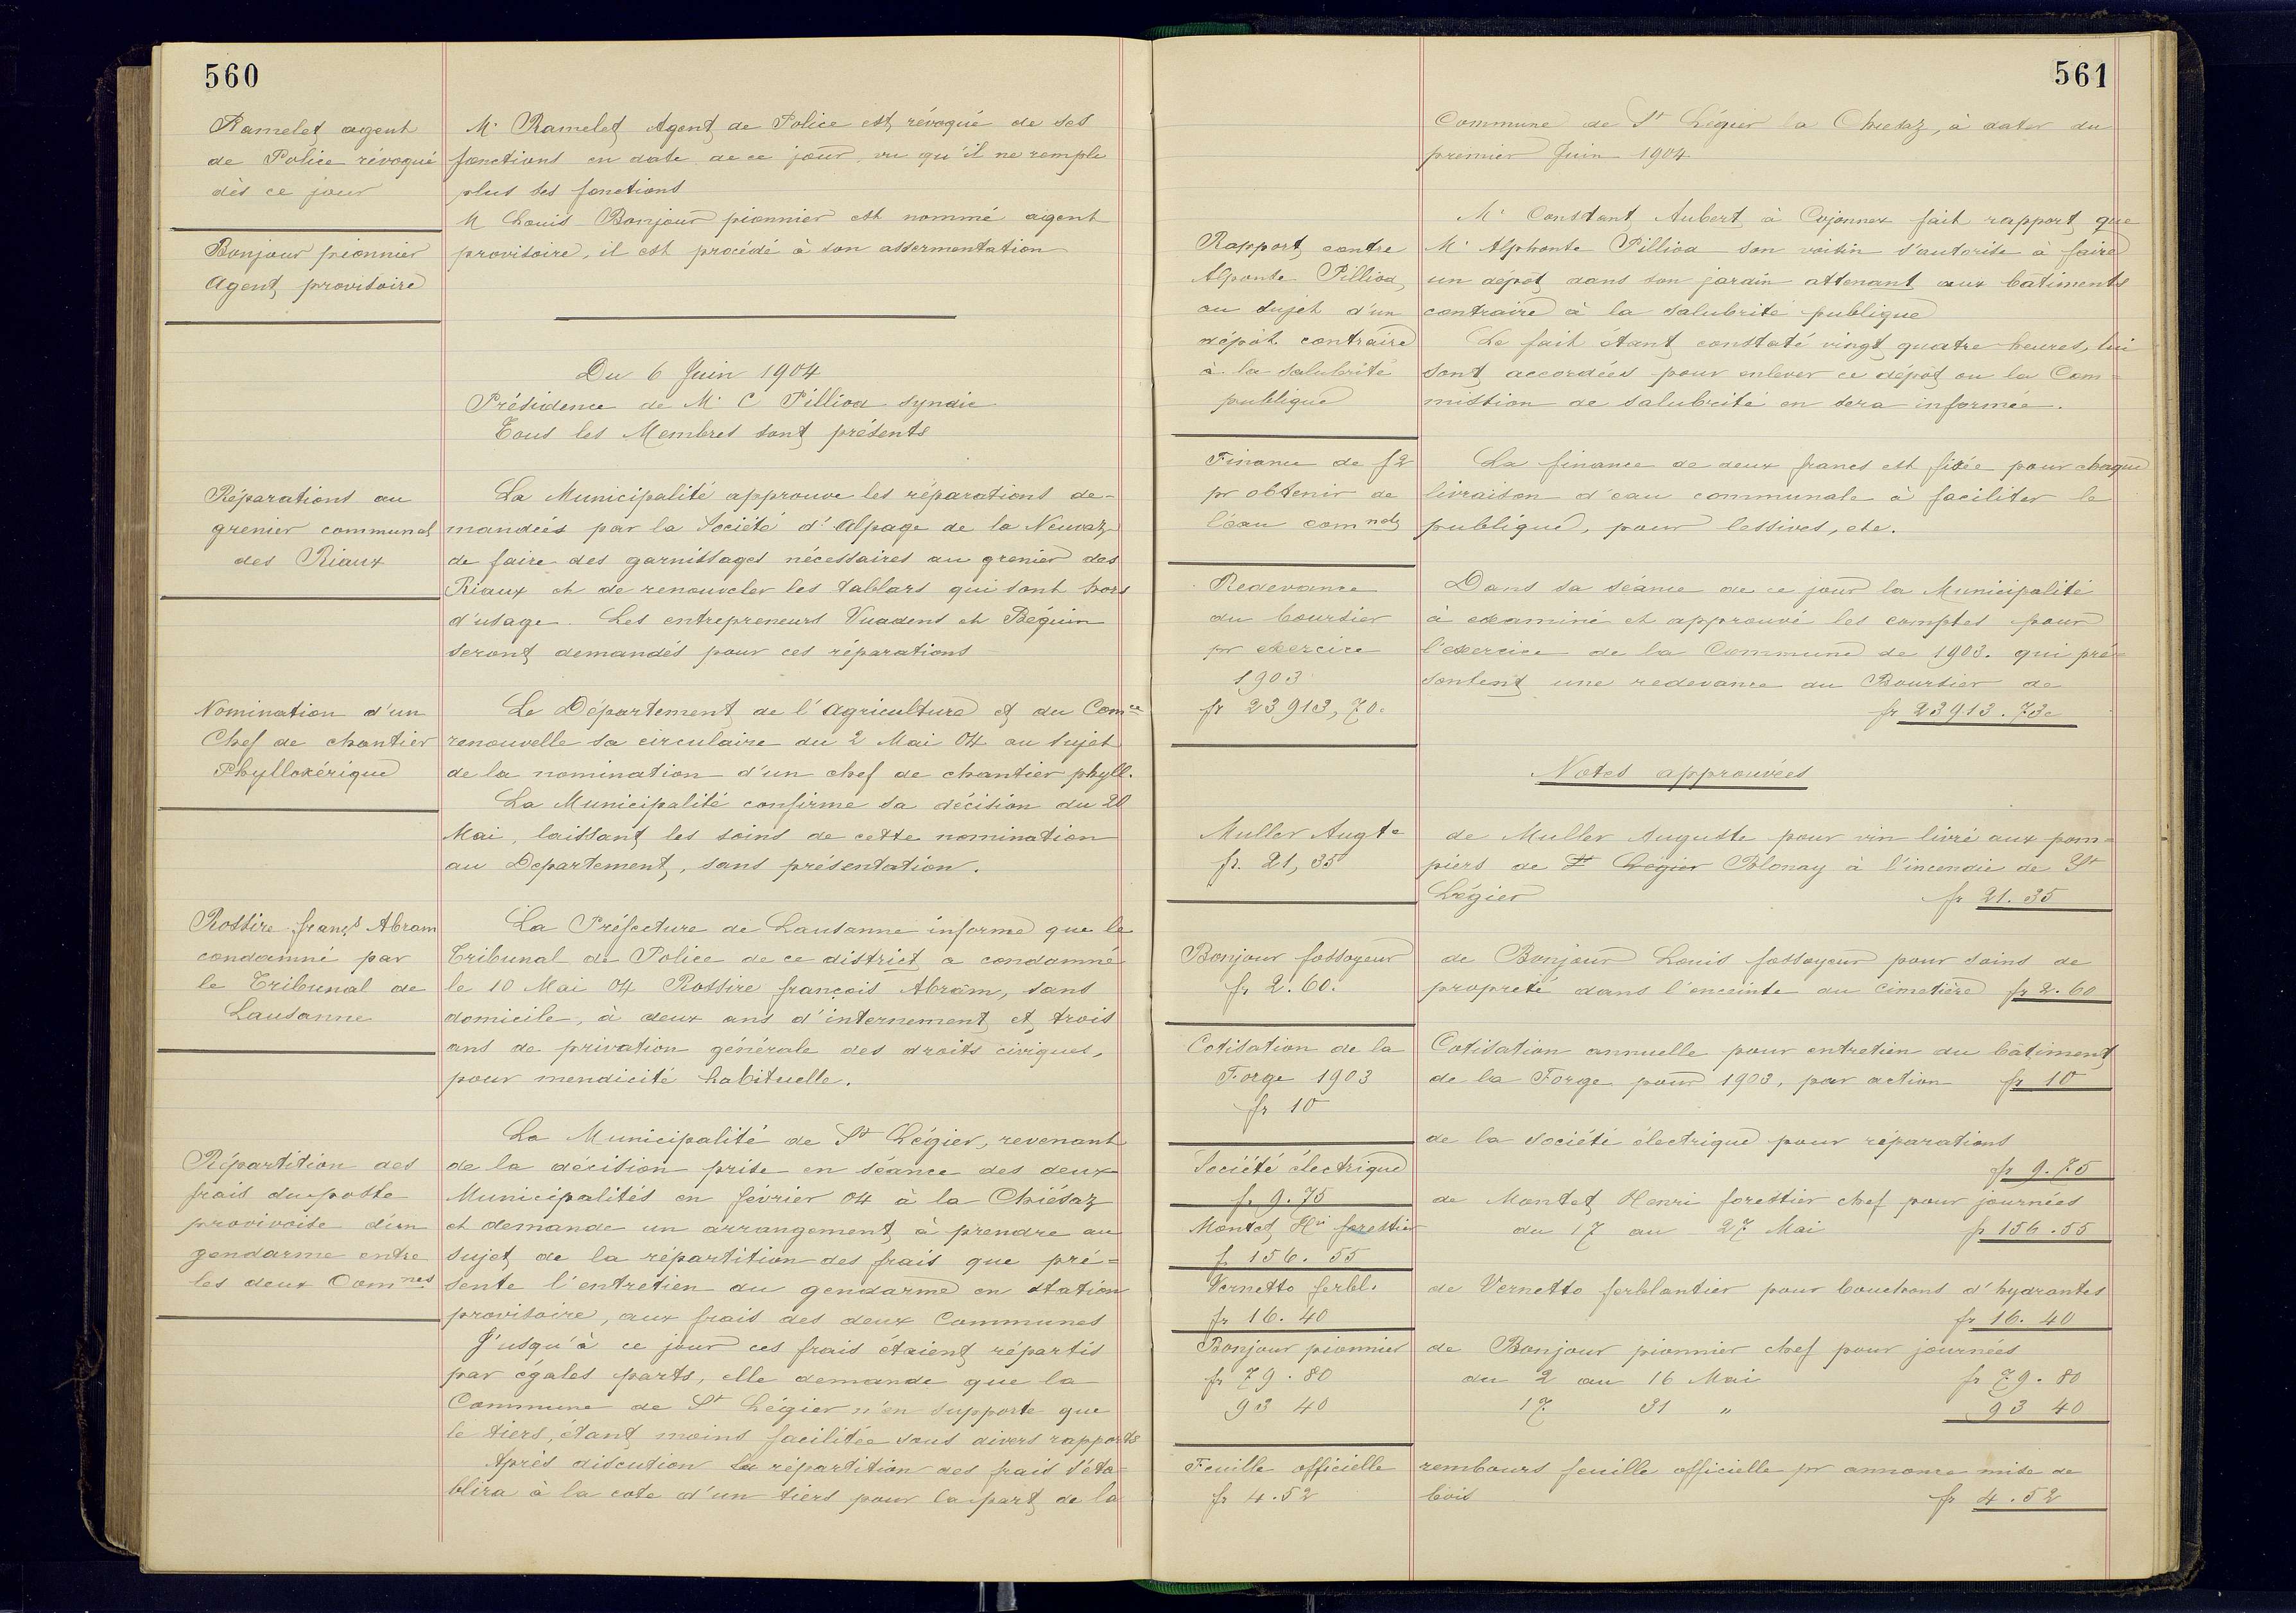 560
Ramelet agent
de Police révoqué
dès ce jour
Mr Ramelet Agent de Police est révoqué de ses
fonctions en date de ce jour, vu qu'il ne remplie
plus ses fonctions
Bonjour pionnier
Agent provisoire
M Louis Bonjour pionnier est nommé agent
provisoire, il est procédé à son assermentation
Du 6 Juin 1904
Présidence de Mr C Pilliod syndic
Tous les Membres sont présents
Réparations au
grenier communal
des Riaux
La Municipalité approuve les réparations de-
mandées par la Société d'Alpage de la Neuvaz
de faire des garnissages nécessaires au grenier des
Riaux et de renouveler les tablars qui sont hors
d'usage. Les entrepreneurs Vuadens et Béguin
seront demandés pour ces réparations
Nomination d'un
Chef de chantier
Phylloxérique
Le Département de l'agriculture et du Comce
renouvelle sa circulaire du 2 Mai 04 au sujet
de la nomination d'un chef de chantier phyll.
La Municipalité confirme sa décision du 20
Mai, laissant les soins de cette nomination
au Departement, sans présentation.
Rossire françs Abram
condamné par
le Tribunal de
Lausanne
La Préfecture de Lausanne informe que le
Tribunal de Police de ce district a condamné
le 10 Mai 04 Rossire françois Abram, sans
domicile, à deux ans d'internement et trois
ans de privation générale des droits civiques,
pour mendicité habituelle.
Répartition des
frais du poste
provivoise d'un
gendarme entre
les deux Comnes
La Municipalité de St Légier, revenant
de la décision prise en séance des deux
Municipalités en février 04 à la Chiésaz
et demande un arrangement à prendre au
sujet de la répartition des frais que pré=
sente l'entretien du gendarme en station
provisoire, aux frais des deux Communes
Jusqu'à ce jour ces frais étaient répartis
par égales parts, elle demande que la
Commune de St Légier n'en supporte que
le tiers, étant moins facilitée sous divers rapports
Après discution la répartition des frais s'éta-
blira à la cote d'un tiers pour la part de la
561
Commune de St Légier la Chiesaz, à dater du
premier Juin 1904
Rapport contre
Alponse Pilliod,
au sujet d'un
dépôt contraire
à la salubrité
publique
Mr Constant Aubert à Cojonnex fait rapport que
Mr Alphonse Pilliod son voisin s'autorise à faire
un dépôt dans son jardin attenant aux bâtiments
contraire à la salubrité publique
Le fait étant constaté vingt quatre heures, lui
sont accordées pour enlever ce dépôt ou la Com=
mission de salubrité en sera informée.
Finance de f 2
pr obtenir de
l'eau comnale
La finance de deux francs est fixée pour chaque
livraison d'eau communale à faciliter le
publique, pour lessives, etc.
Redevance
du boursier
pr exercice
1903
fr 23913,70c
Dans sa séance de ce jour la Municipalité
à examiné et approuvé les comptes pour
l'exercice de la Commune de 1903. qui pré=
sentent une redevance du Boursier de
fr 23913.73c
Notes approuvées
Muller Augte
fr. 21,35
de Muller Auguste pour vin livré aux pom=
piers de St Légier Blonay à l'incendie de St
Légier fr 21.35
Bonjour fossoyeur
fr 2.60.
de Bonjour Louis fossoyeur pour soins de
propreté dans l'enceinte du Cimetière fr 2.60
Cotisation de la
Forge 1903
fr 10
Cotisation annuelle pour entretien du bâtiment
de la Forge pour 1903, par action fr 10
Société électrique
fr 9.75
de la société électrique pour réparations
fr 9.75
Montet Hri forestier
f 156.55
de Montet Henri forestier chef pour journées
du 17 au 27 Mai fr 156.55
Vernetto ferbl.
fr 16.40
de Vernetto ferblantier pour bouchons d'hydrantes
fr 16.40
Bonjour pionnier
fr 79.80
93 40
de Bonjour pionnier chef pour journées
du 2 au 16 Mai fr 79.80
17 31 " 93 40
Feuille officielle
fr 4.52
rembours feuille officielle pr annonce mise de
bois fr 4.52